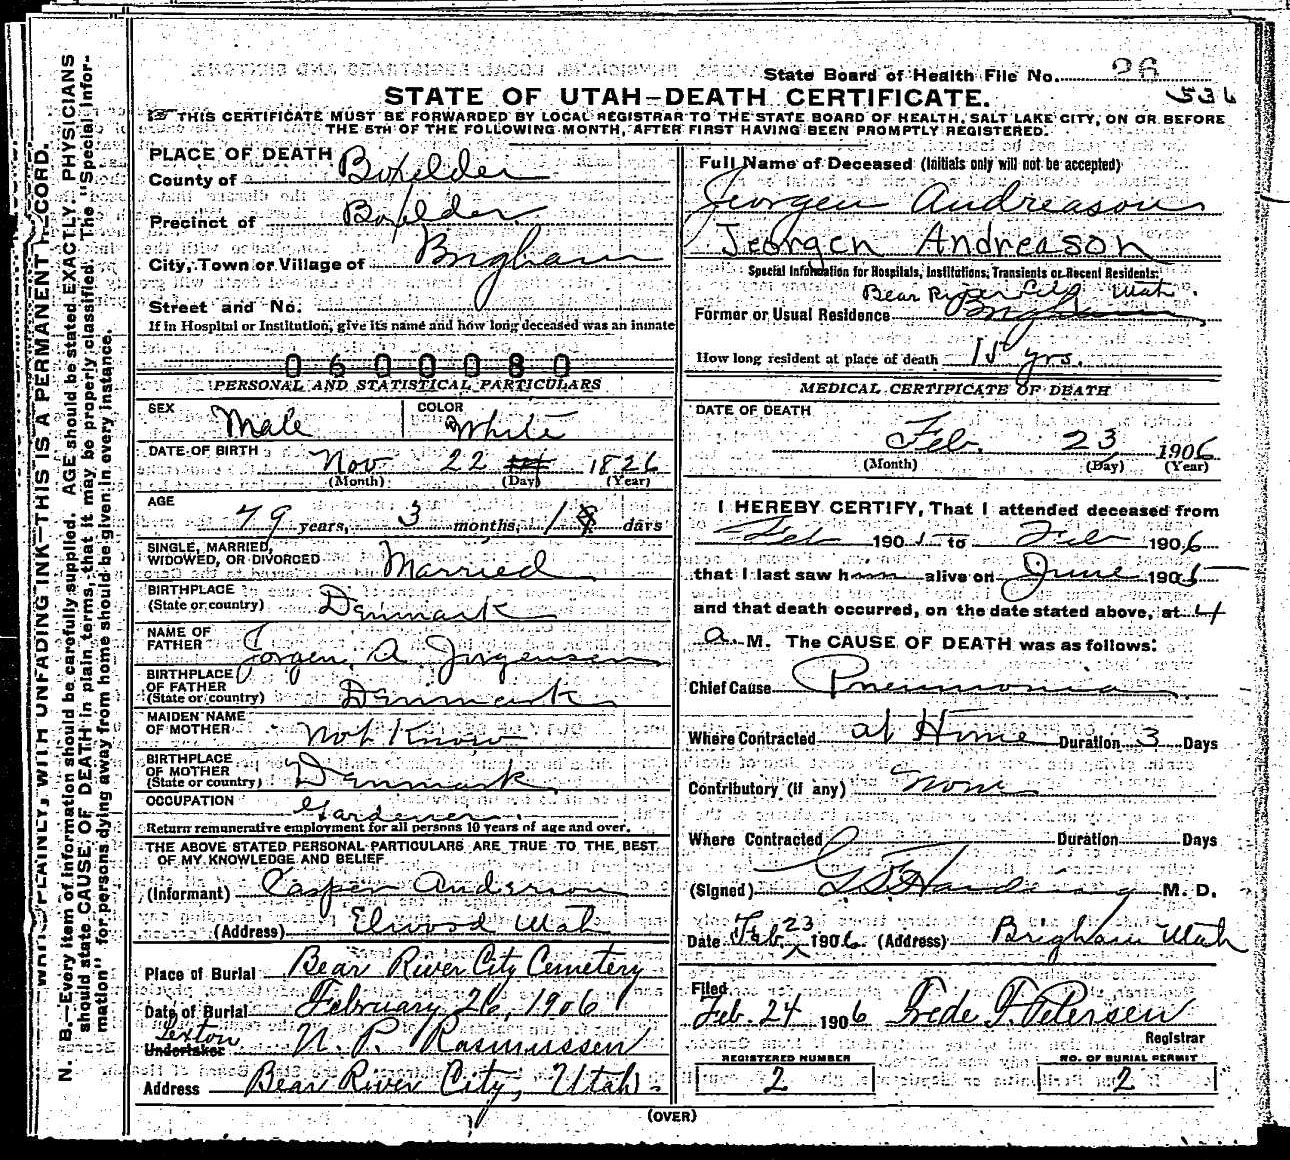 State Board of Health File No. 26
536
STATE OF UTAH—DEATH CERTIFICATE.
☞ THIS CERTIFICATE MUST BE FORWARDED BY LOCAL REGISTRAR TO THE STATE BOARD OF HEALTH, SALT LAKE CITY, ON OR BEFORE
THE 5TH OF THE FOLLOWING MONTH, AFTER FIRST HAVING BEEN PROMPTLY REGISTERED.
PLACE OF DEATH
County of Boxelder
Precinct of Boxelder
City, Town or Village of Brigham
Street and No.
If in Hospital or Institution, give its name and how long deceased was an inmate
0600080
PERSONAL AND STATISTICAL PARTICULARS
SEX Male COLOR White
DATE OF BIRTH Nov 22 1826
(Month) (Day) (Year)
AGE 79 years, 3 months, 1 days
SINGLE, MARRIED,
WIDOWED, OR DIVORCED Married
BIRTHPLACE
(State or country) Denmark
NAME OF
FATHER Jorgen A Jorgensen
BIRTHPLACE
OF FATHER
(State or country) Denmark
MAIDEN NAME
OF MOTHER Not Know
BIRTHPLACE
OF MOTHER
(State or country) Denmark
OCCUPATION Gardener.
Return remunerative employment for all persons 10 years of age and over.
THE ABOVE STATED PERSONAL PARTICULARS ARE TRUE TO THE BEST
OF MY KNOWLEDGE AND BELIEF
(Informant) Casper Anderson
(Address) Elwood Utah
Place of Burial Bear River City Cemetery
Date of Burial February 26, 1906
Sexton
Undertaker N. P. Rasmussen
Address Bear River City, Utah.
Full Name of Deceased (Initials only will not be accepted)
Jeorgen Andreason
Jeorgen Andreason
Special Information for Hospitals, Institutions, Transients or Recent Residents:
Bear River City Utah.
Former or Usual Residence Brigham
How long resident at place of death 15 yrs.
MEDICAL CERTIFICATE OF DEATH
DATE OF DEATH
Feb. 23 1906
(Month) (Day) (Year)
I HEREBY CERTIFY, That I attended deceased from
Feb 1905 to Feb 1906
that I last saw him alive on June 1905
and that death occurred, on the date stated above, at 4
a. M. The CAUSE OF DEATH was as follows:
Chief Cause Pneumonia
Where Contracted at Home Duration 3 Days
Contributory (if any) None
Where Contracted Duration Days
(Signed) Harding M. D.
Date Feb. 23 1906. (Address) Brigham Utah
Filed
Feb. 24 1906 Frede F. Petersen
Registrar
REGISTERED NUMBER NO. OF BURIAL PERMIT
2 2
(OVER)
PLAINLY, WITH UNFADING INK—THIS IS A PERMANENT RECORD.
N. B.—Every item of information should be carefully supplied. AGE should be stated EXACTLY. PHYSICIANS
should state CAUSE OF DEATH in plain terms, that it may be properly classified. The "Special Infor-
mation" for persons dying away from home should be given in every instance.